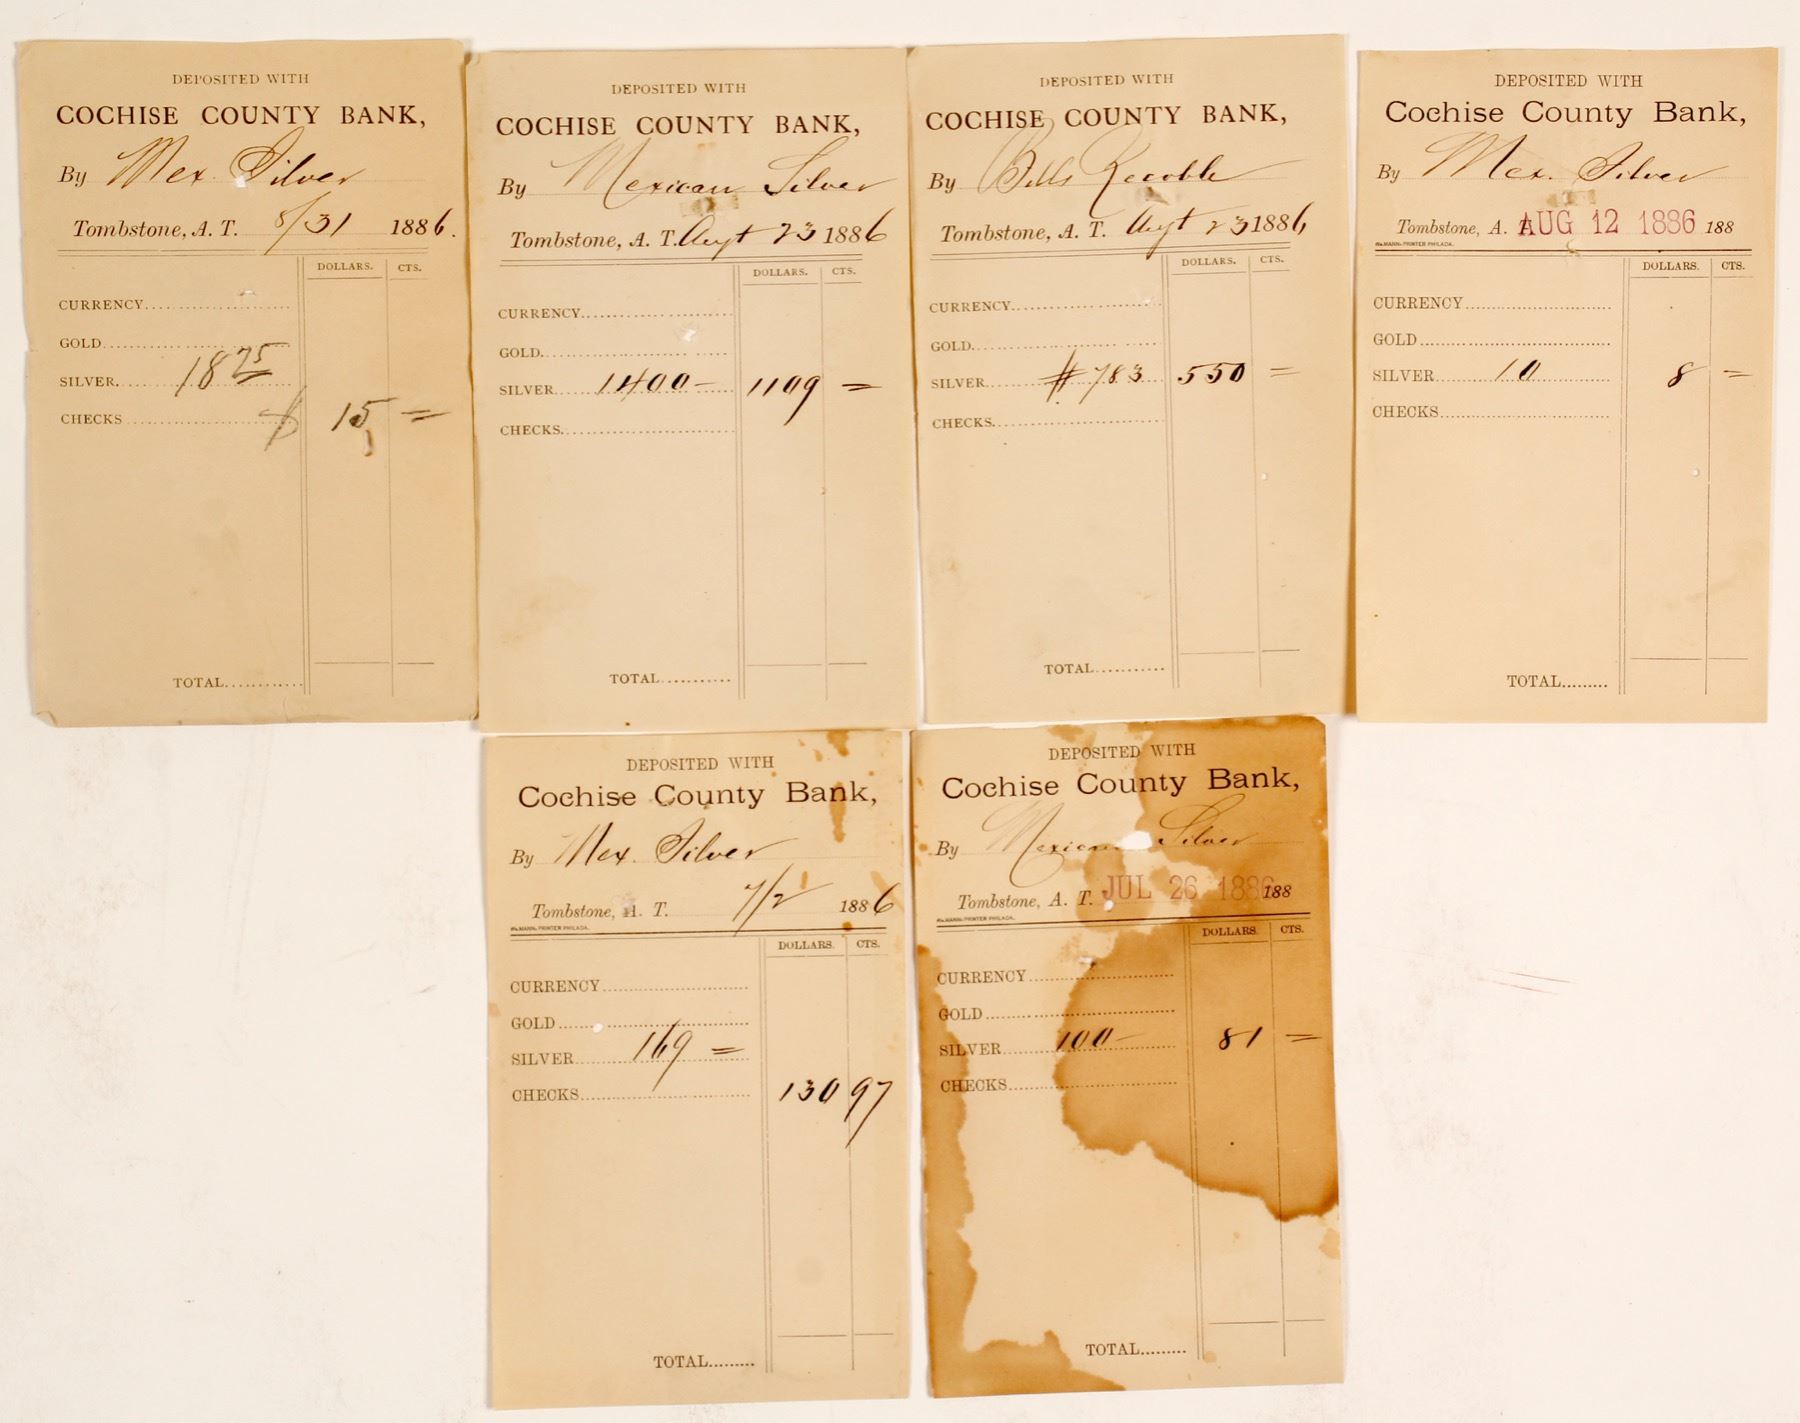 DEPOSITED WITH
COCHISE COUNTY BANK,
By Mex. Silver
Tombstone, A. T. 8/31 1886.
DOLLARS. CTS.
CURRENCY
GOLD
SILVER 18 75
CHECKS $ 15 =
TOTAL
DEPOSITED WITH
COCHISE COUNTY BANK,
By Mexican Silver
Tombstone, A. T. Augt 23 1886
DOLLARS. CTS.
CURRENCY
GOLD
SILVER 1400 — 1109 =
CHECKS
TOTAL
DEPOSITED WITH
COCHISE COUNTY BANK,
By Bills Recble
Tombstone, A. T. Augt 23 1886
DOLLARS. CTS.
CURRENCY
GOLD
SILVER # 783 550 =
CHECKS
TOTAL
DEPOSITED WITH
Cochise County Bank,
By Mex. Silver
Tombstone, A. T. AUG 12 1886 188
Wm. MANN, PRINTER PHILADA.
DOLLARS. CTS.
CURRENCY
GOLD
SILVER 10 8 =
CHECKS
TOTAL
DEPOSITED WITH
Cochise County Bank,
By Mex. Silver
Tombstone, A. T. 7/2 1886
Wm. MANN, PRINTER PHILADA.
DOLLARS. CTS.
CURRENCY
GOLD
SILVER 169 =
CHECKS 130 97
TOTAL
DEPOSITED WITH
Cochise County Bank,
By Mexican Silver
Tombstone, A. T. JUL 26 1886 188
Wm. MANN, PRINTER PHILADA.
DOLLARS. CTS.
CURRENCY
GOLD
SILVER 100 — 81 =
CHECKS
TOTAL